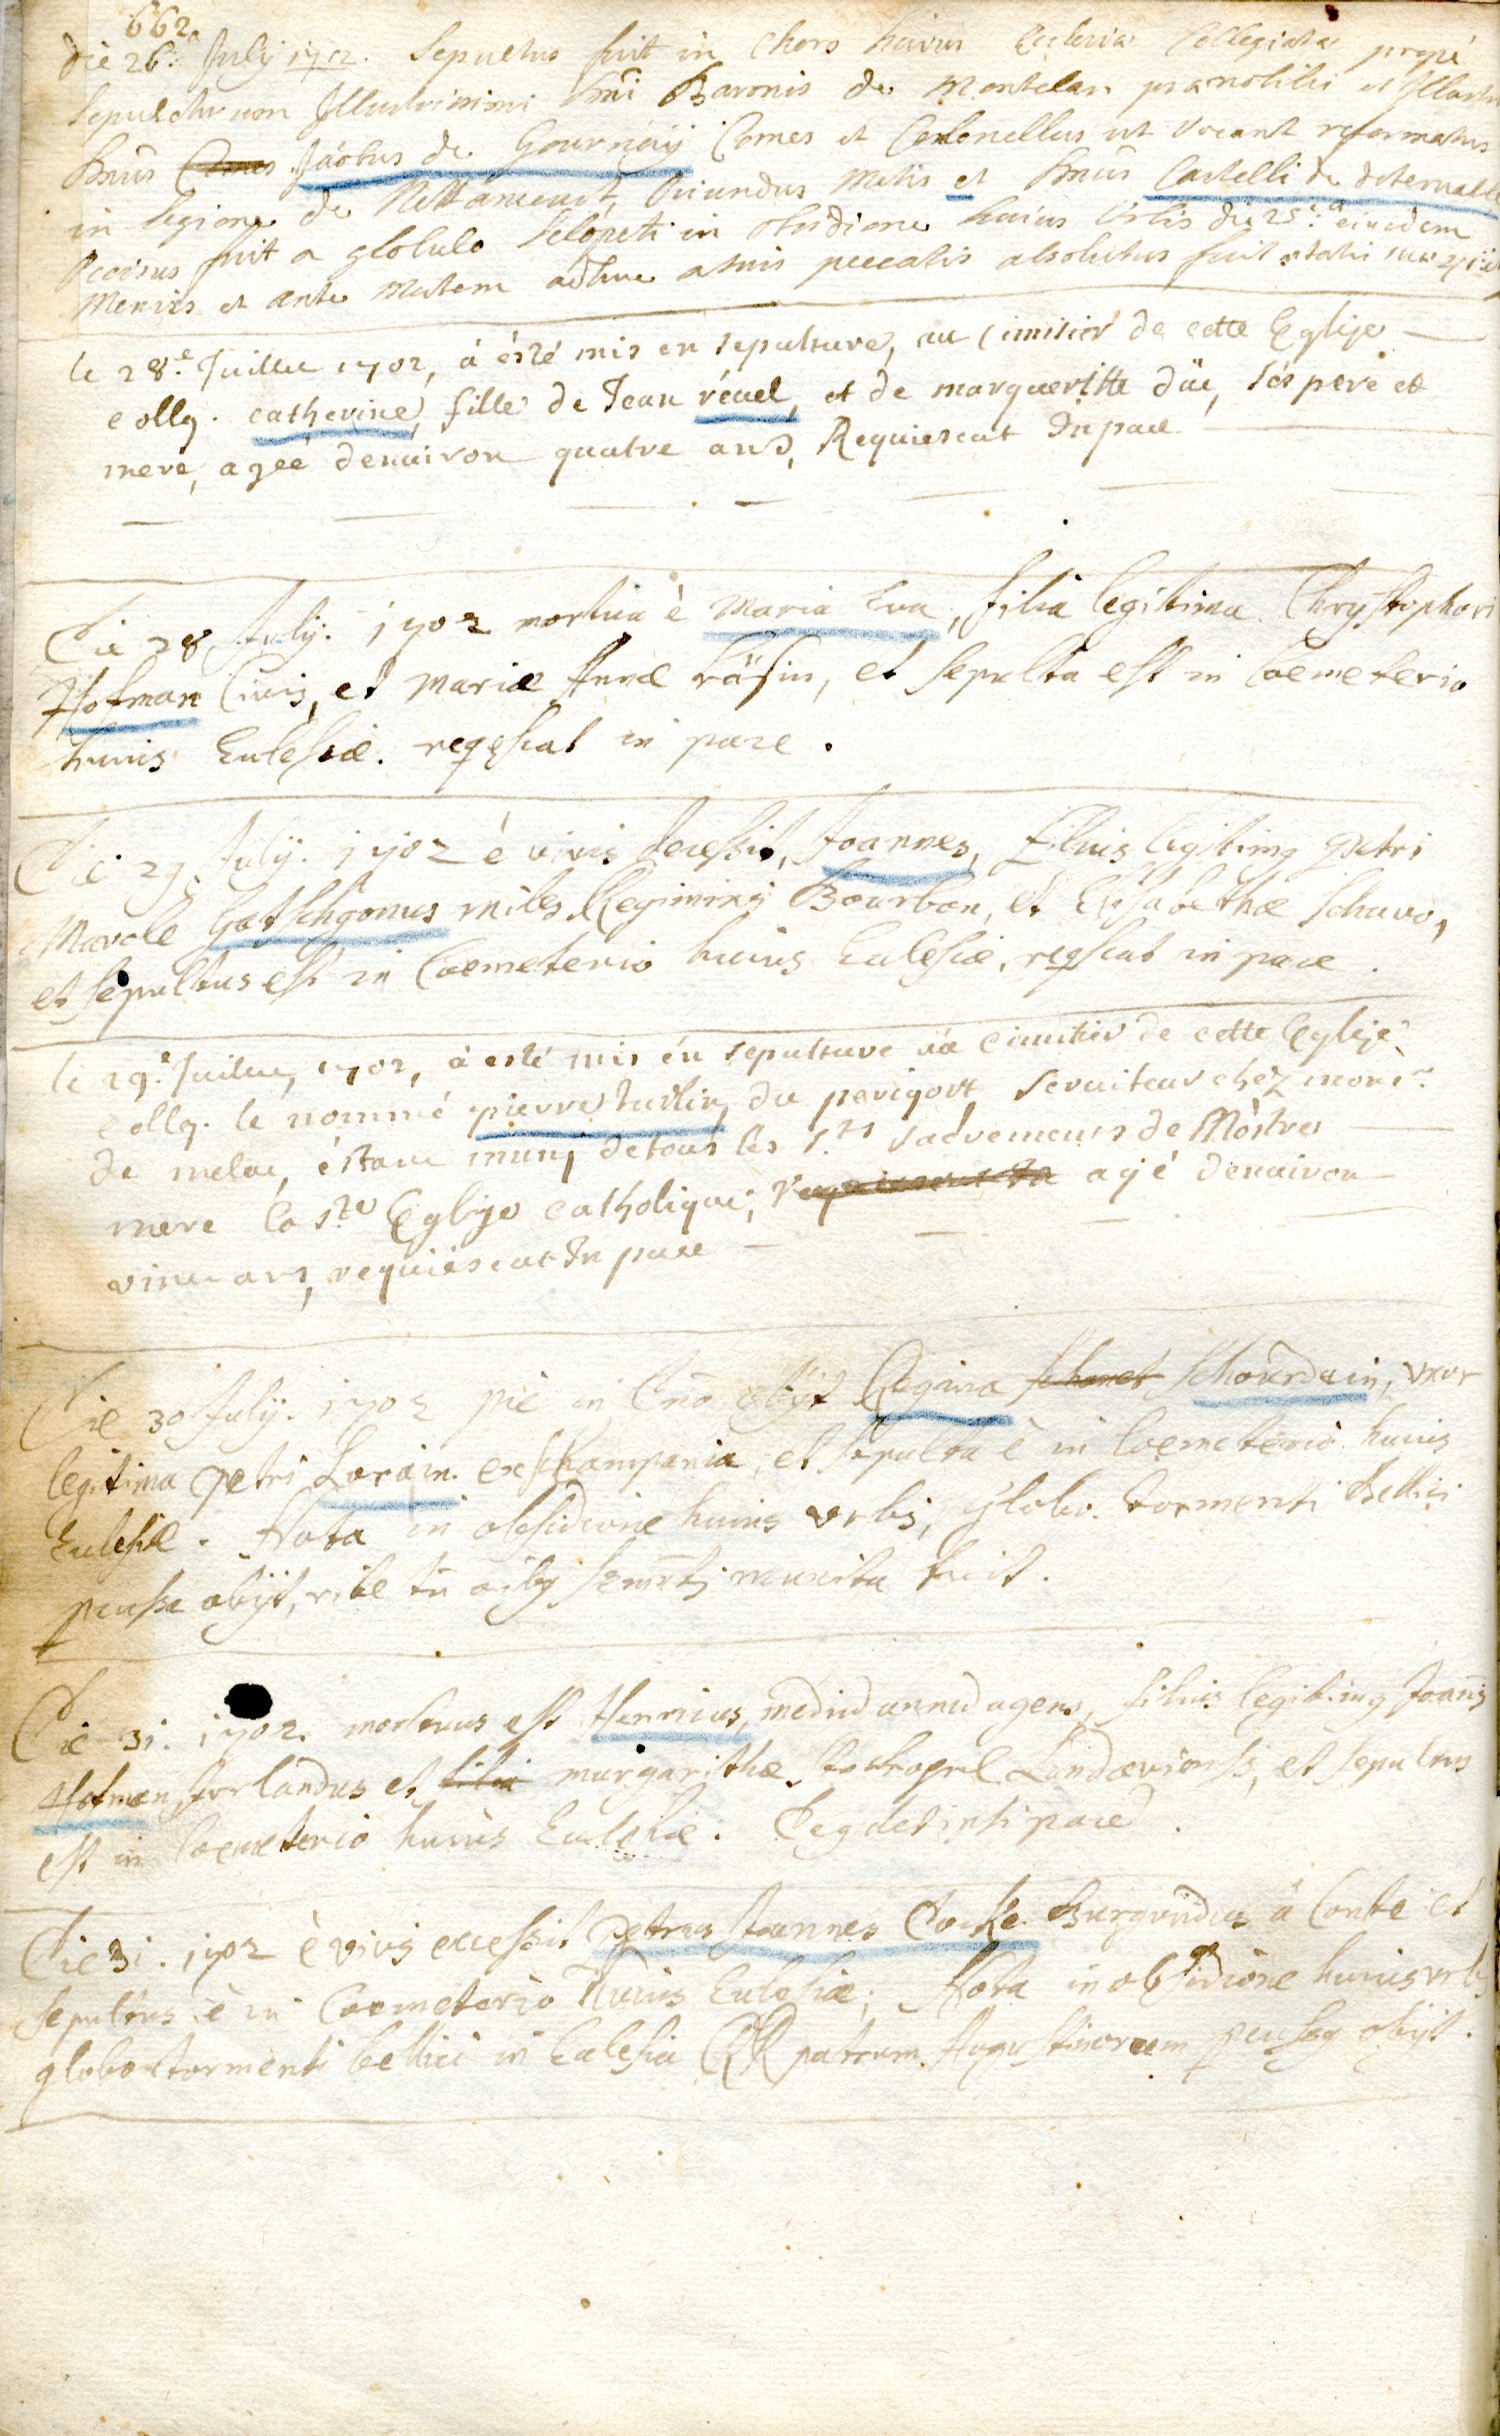 662
die 26.ta July 1702. Sepultus fuit in choro huius Ecclesiæ Collegiatæ propè
sepulchrum Illustrissimi Dni Baronis de Montclar prænobilis et Illustris
Dnūs Comes Jacobus de Gournaÿ Comes et Colonellus ut vocant reformatus
in legione de Nettancourt, Oriundus Metis et Dnūs Castelli de
Occisus fuit a globulo sclopeti in obsidione huius Urbis die 25.ta eiusdem
Mensis et ante Mortem adhuc a suis peccatis absolutus fuit ætatis suæ
le 28.e Juillet 1702, à ésté mis en sepulture, au Cimitier de cette Eglise
collg. catherine, fille de Jean réuel, et de margueritte düe, sés pere et
mere, agéé denuiron quatre ans, Requiescat In pace
Die 28 July. 1702 mortua ē Maria Eva, filia legitima Chrystophori
Hofman Civis, et Mariæ Annæ räsin, et sepulta est in Coemeterio
huius Eclesiæ. reqescat in pace.
Die 29 July. 1702 è vivis decessit, Joannes, Filius legitimg Petri
Marole Gatschgomes miles Regiminis Bourbon, et Elisabethæ Schuvo,
et sepultus est in Coemeterio huius Eclesiæ, reqscat in pace.
le 29.e Juillet, 1702, à esté mis én sepulture au Cimitier de cette Eglise
collg. le nommé pierre tuilin, du perigort, seruiteur chez monsr.
de melac, éstant muny de tous les s.ts sacremens de Nostre
mere la s.te Eglise catholique; requiescat In agé denuiron
vint ans, requiescat In pace
Die 30 July. 1702 piè in Dno obijt Regina Schonet Schourdain, vxor
legitima Petri Lorain ex Champania, et sepulta ē in Coemeterio huius
Eclesiæ. Nota in obsidione huius vrbis, globo tormenti Bellici
percussa obijt, rite tn oībg Scmtis munita fuit.
Die 31. 1702. mortuus est Henricus, mediū annū agens, filius legitimg Joanis
Hofman, Irrlandus et filia margarithæ Landaviensis, et sepultus
est in Coemeterio huius Eclesiæ.
Die 31. 1702 è vivis excessit Petrus Joannes Cocké Burgundus à Conte et
sepultus ē in Coemeterio huius Eclesiæ; Nota in obsidione huius vrbis
globo tormenti bellici in Eclesia RR patrum Augustinorum percussg obijt.